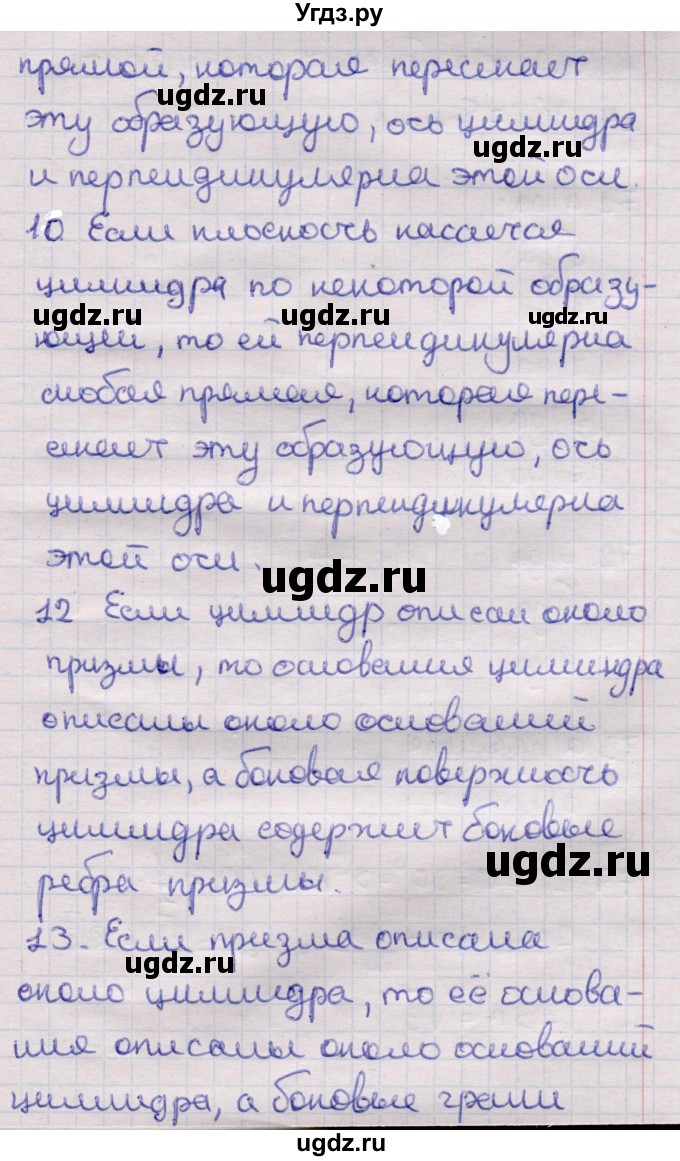 Угдз.ру
прямой, которая пересекает
эту образующую, ось цилиндра
и перпендикулярна этой оси.
10. Если плоскость касается
цилиндра по некоторой образу-
ющей, то ей перпендикулярна
любая прямая, которая пере-
екает эту образующую, ось
цилиндра и перпендикулярна
этой оси.
12 Если цилиндр описан около
призмы, то основания цилиндра
описаны около оснований
призмы, а боковая поверхность
цилиндра содержит боковые
ребра призмы.
13. Если призма описана
около цилиндра, то её основа-
ния описаны около оснований
цилиндра, а боковые грани
ugdz.ru
ugdz.ru
ugdz.ru
ugdz.ru
ugdz.ru
ugdz.ru
ugdz.ru
ugdz.ru
ugdz.ru
ugdz.ru